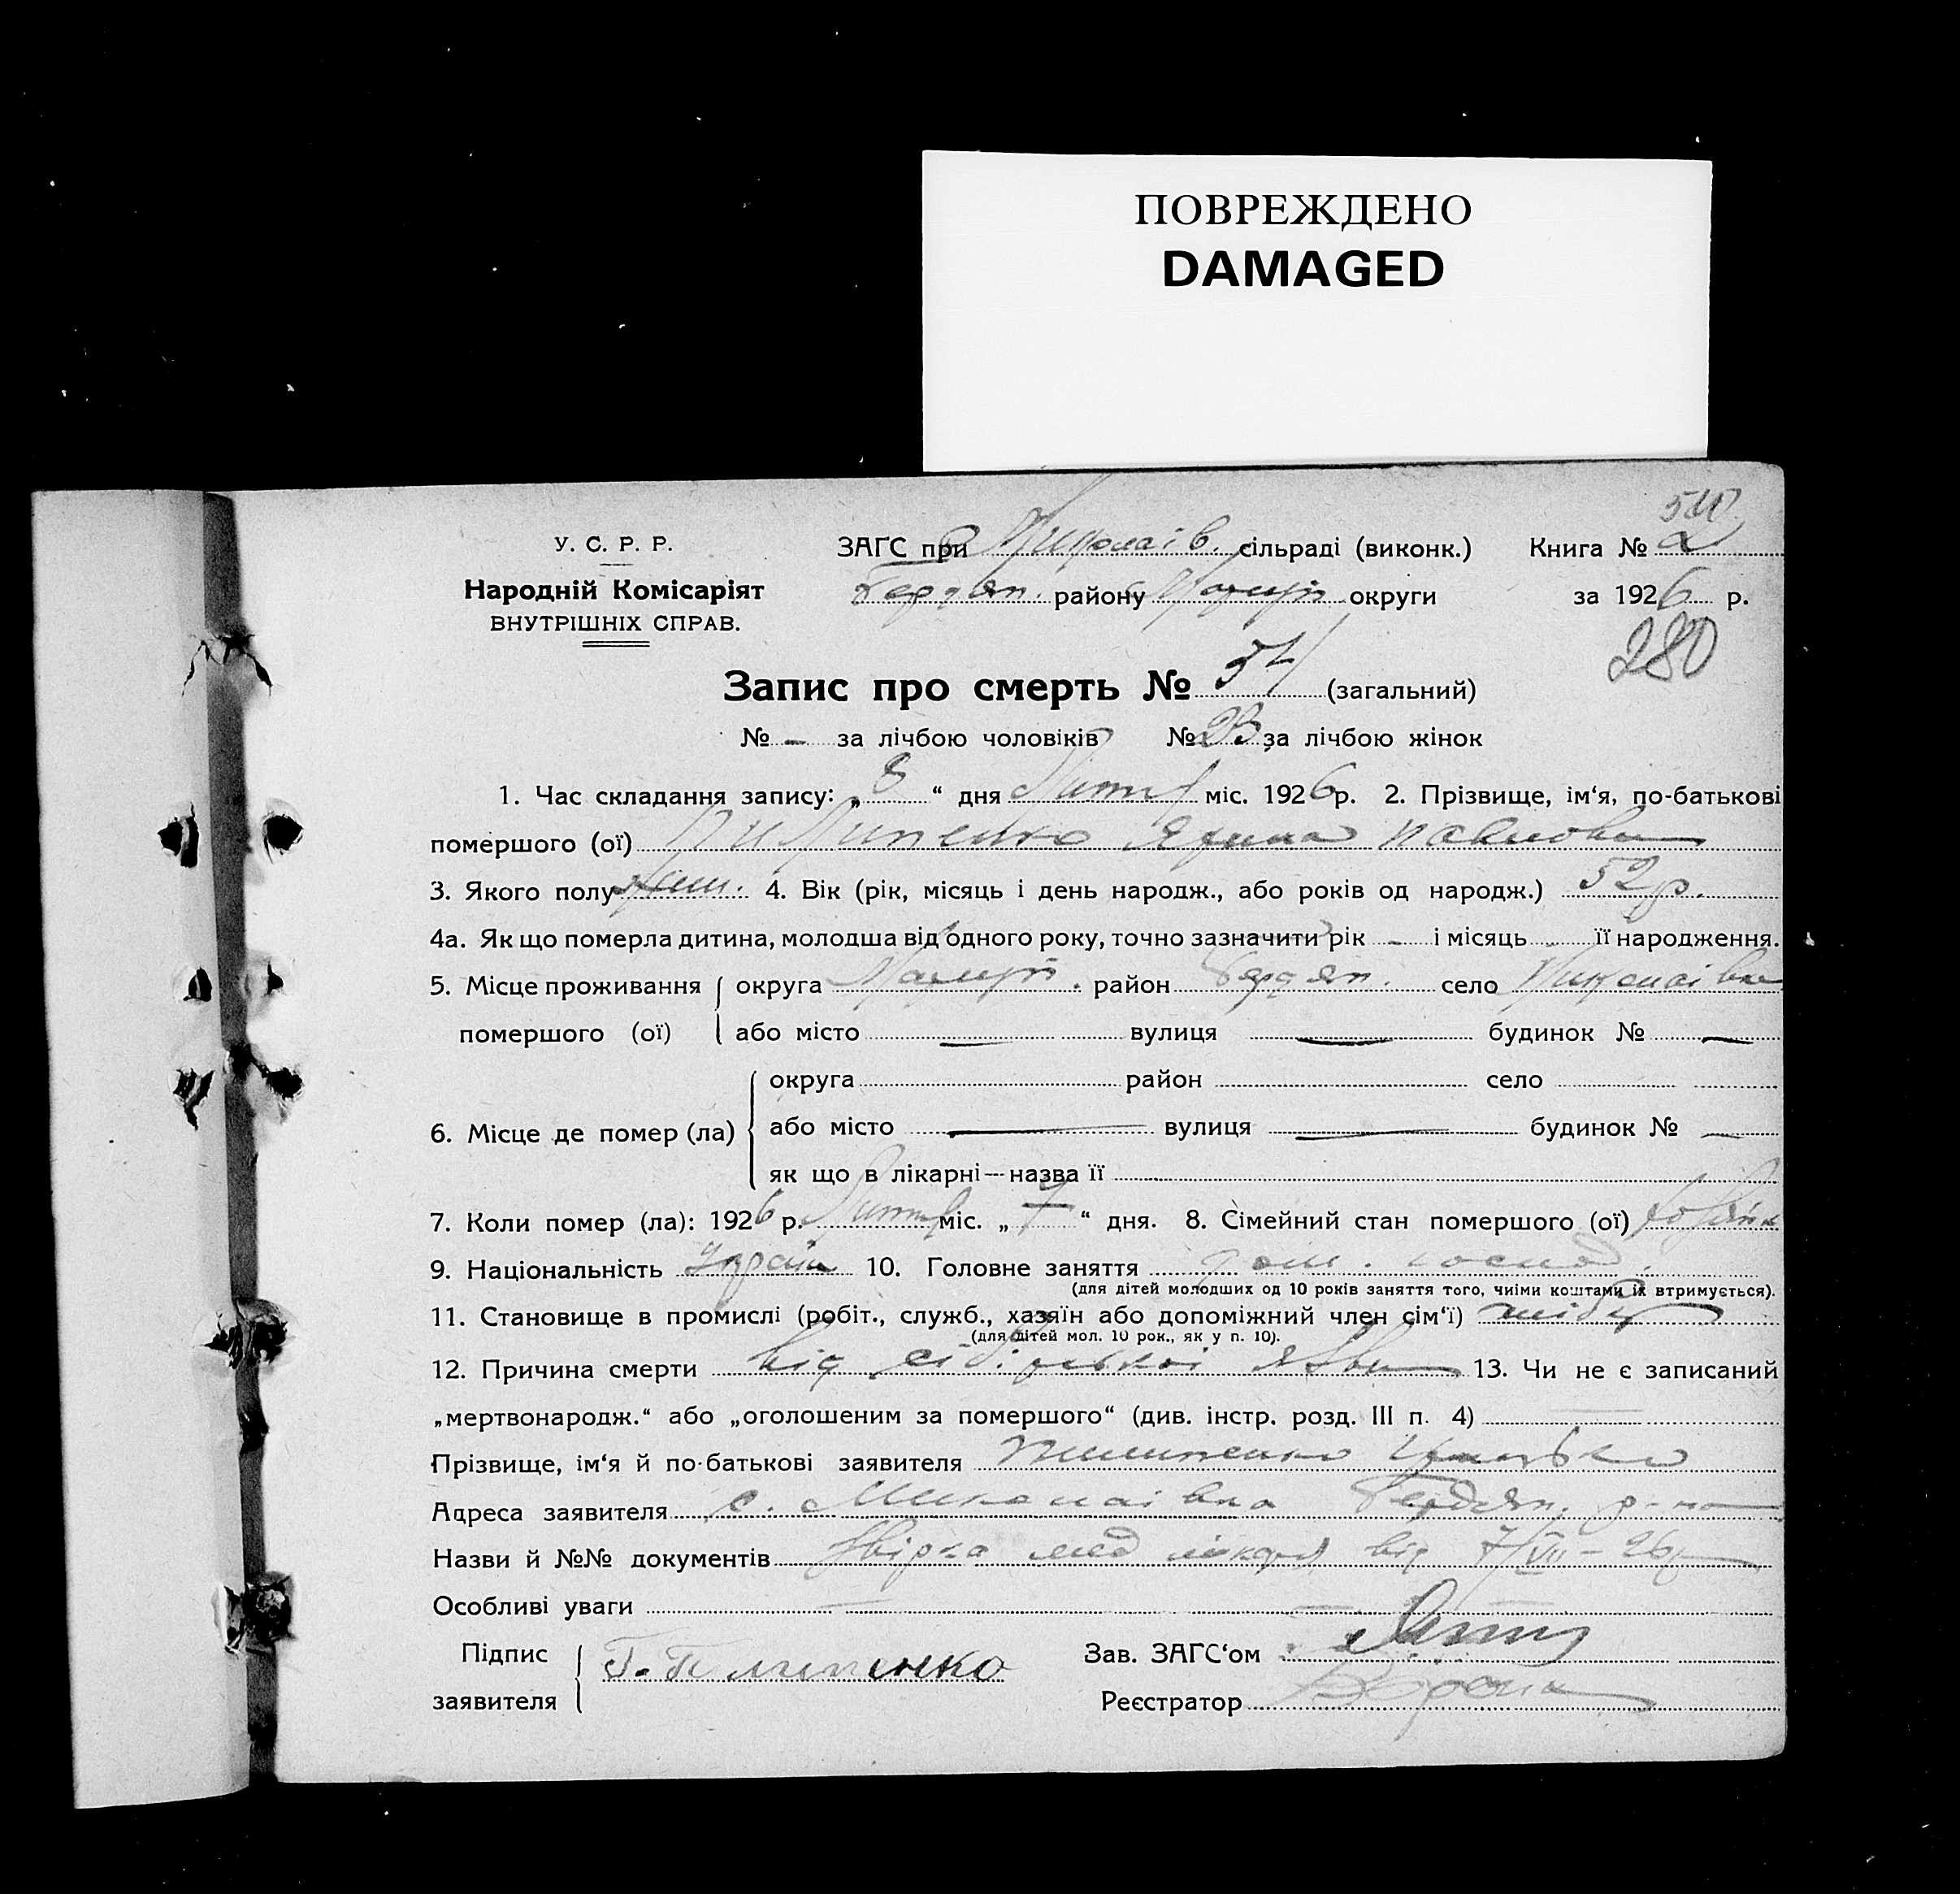 ПОВРЕЖДЕНО
DAMAGED
У. С. Р. Р.
Народній Комісаріят
ВНУТРІШНІХ СПРАВ.
ЗАГС при Миколаів. сільраді (виконк.) Книга № 2
Бердян. району Маріуп. округи за 1926 р.
280
Запис про смерть № 54 (загальний)
№ - за лічбою чоловіків № 23 за лічбою жінок
1. Час складання запису: „8“ дня Липня міс. 1926 р. 2. Прізвище, ім‘я, по-батькові
помершого (ої) Пилипенко Ярина Павловна
3. Якого полу жин. 4. Вік (рік, місяць і день народж., або років од народж.) 52 р.
4а. Як що померла дитина, молодша від одного року, точно зазначити рік - і місяць - її народження.
5. Місце проживання округа Маріуп. район Бердян. село Миколаівка
помершого (ої) або місто — вулиця — будинок № —
округа район село
6. Місце де помер (ла) або місто — вулиця — будинок № —
як що в лікарні—назва її
7. Коли помер (ла): 1926 р. Липня міс. „7“ дня. 8. Сімейний стан помершого (ої)
9. Національність Україн 10. Головне заняття дом. господ.
(для дітей молодших од 10 років заняття того, чиїми коштами їх втримується).
11. Становище в промислі (робіт., служб., хазяїн або допоміжний член сім‘ї)
(для дітей мол. 10 рок., як у п. 10).
12. Причина смерти від сібірськоі язви 13. Чи не є записаний
„мертвонародж.“ або „оголошеним за помершого“ (див. інстр. розд. III п. 4) —
Прізвище, ім‘я й по-батькові заявителя Пилипенко
Адреса заявителя с. Миколаівка Бердян. р-на
Назви й №№ документів мед від 7/VII–26р
Особливі уваги — — —
Підпис Г. Пилипенко Зав. ЗАГС‘ом
заявителя Реєстратор